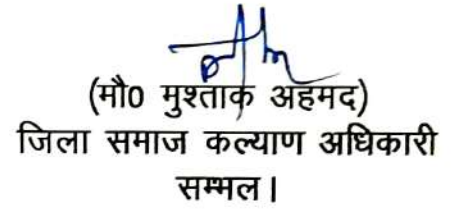 (मौ0 मुश्ताक़ अहमद)
जिला समाज कल्याण अधिकारी
सम्भल।